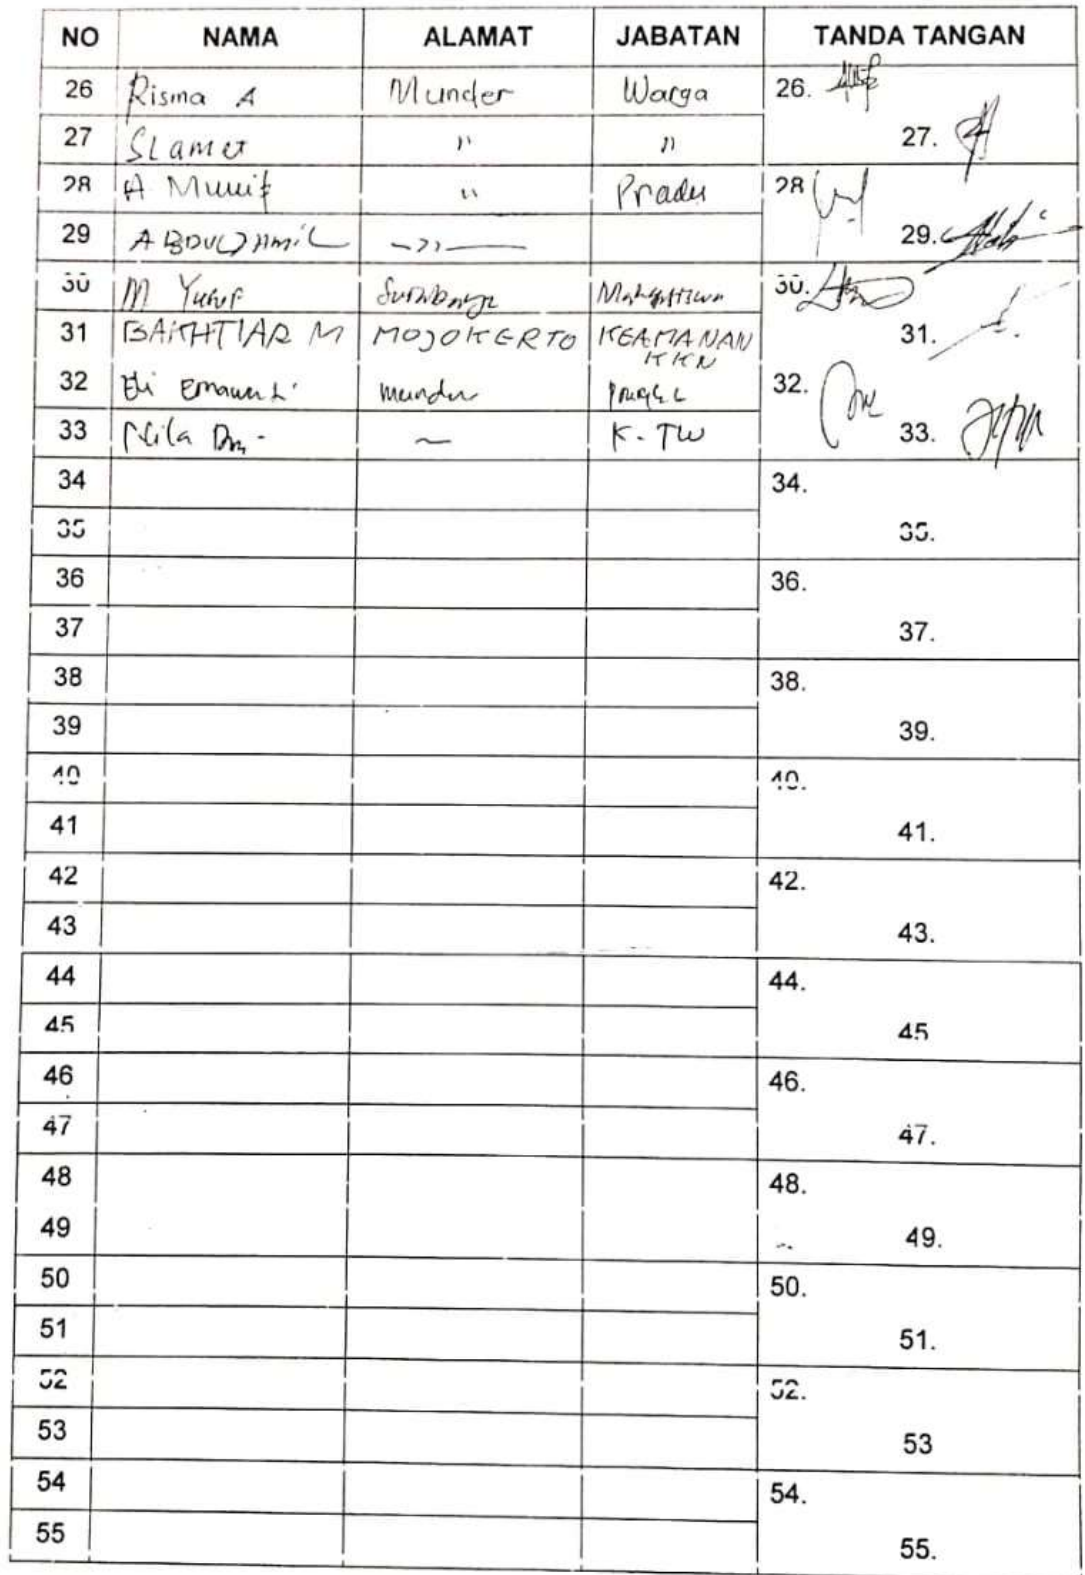 NO NAMA ALAMAT JABATAN TANDA TANGAN
26 Risma A Munder Warga 26.
27 SLamet " " 27.
28 A Munif " 28
29 ABDUL JAMIL —"— 29.
30 M Yusuf Surabaya Mahasiswa 30.
31 BAKHTIAR M MOJOKERTO KEAMANAN 31.
KKN
32 Eli Ernawati munder 32.
33 Nila K-TW 33.
34 34.
35 35.
36 36.
37 37.
38 38.
39 39.
40 40.
41 41.
42 42.
43 43.
44 44.
45 45
46 46.
47 47.
48 48.
49 49.
50 50.
51 51.
52 52.
53 53
54 54.
55 55.